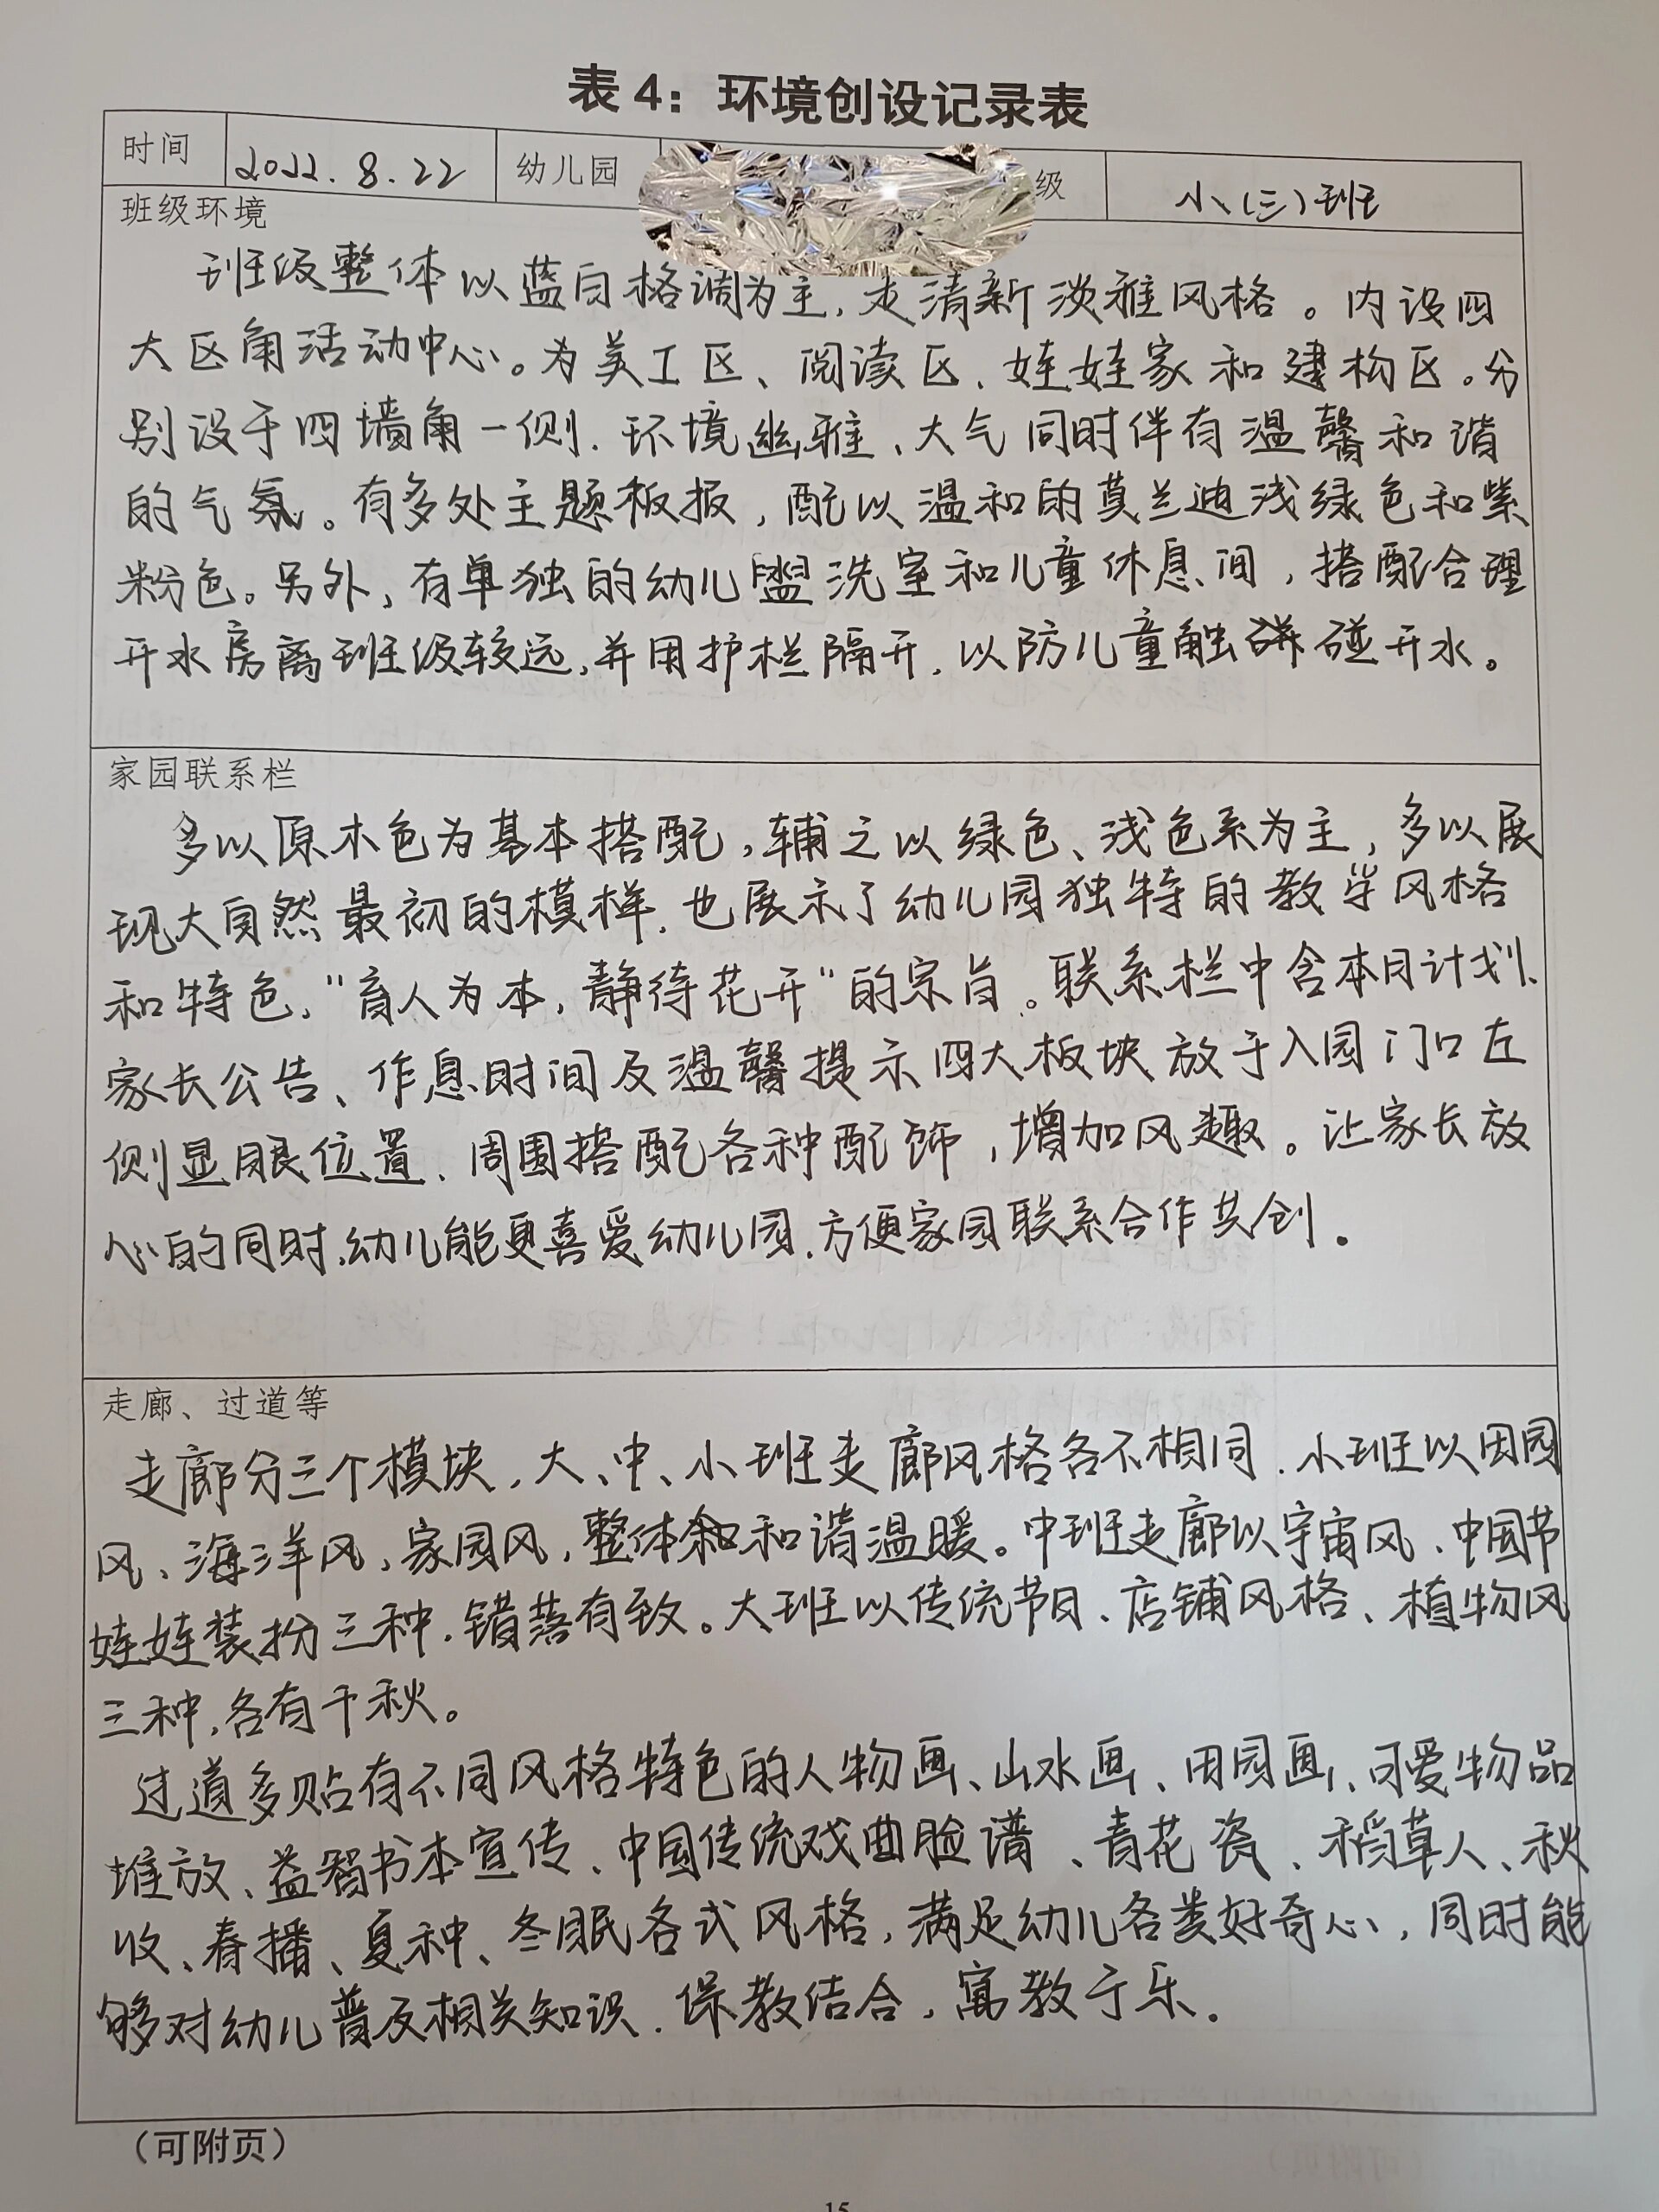 表 4：环境创设记录表
时间 2022.8.22 幼儿园 级 小（三）班
班级环境
班级整体以蓝白格调为主，走清新淡雅风格。内设四
大区角活动中心。为美工区、阅读区、娃娃家和建构区。分
别设于四墙角一侧.环境幽雅、大气同时伴有温馨和谐
的气氛。有多处主题板报，配以温和的莫兰迪浅绿色和紫
粉色。另外，有单独的幼儿盥洗室和儿童休息间，搭配合理
开水房离班级较远,并用护栏隔开，以防儿童触碰开水。
家园联系栏
多以原木色为基本搭配，辅之以绿色、浅色系为主，多以展
现大自然最初的模样.也展示了幼儿园独特的教学风格
和特色，“育人为本，静待花开”的宗旨。联系栏中含本日计划、
家长公告、作息时间及温馨提示四大板块放于入园门口左
侧显眼位置.周围搭配各种配饰，增加风趣。让家长放
心的同时,幼儿能更喜爱幼儿园.方便家园联系合作共创。
走廊、过道等
走廊分三个模块，大、中、小班走廊风格各不相同.小班以田园
风、海洋风，家园风，整体和谐温暖。中班走廊以宇宙风、中国节
娃娃装扮三种.错落有致。大班以传统节日、店铺风格、植物风
三种，各有千秋。
过道多贴有不同风格特色的人物画、山水画、田园画、可爱物品
堆放、益智书本宣传、中国传统戏曲脸谱、青花瓷、稻草人、秋
收、春播、夏种、冬眠各式风格，满足幼儿各类好奇心，同时能
够对幼儿普及相关知识.保教结合，寓教于乐。
（可附页）
15